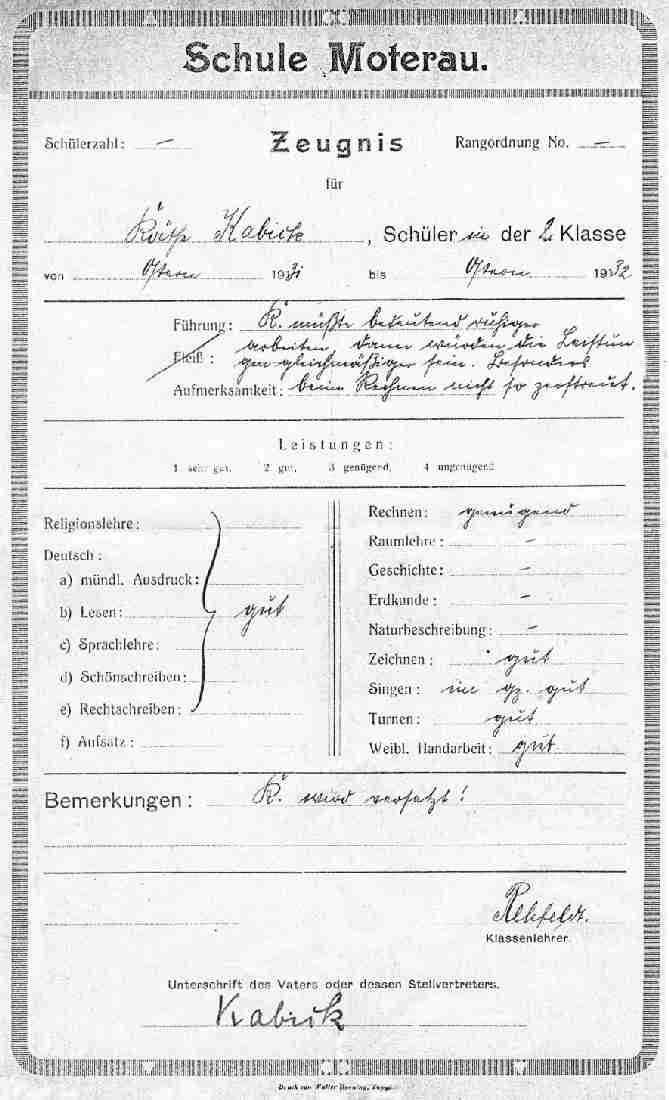 Schule Moterau.
Schülerzahl: – Zeugnis Rangordnung No. –
für
Käthe Kabick, Schülerin der 2. Klasse
von Ostern 1931 bis Ostern 1932
Führung: K. müßte bedeutend ruhiger
arbeiten, dann würden die Leistun
Fleiß: gen gleichmäßiger sein. Besonders
Aufmerksamkeit: beim Rechnen nicht so zerstreut.
Leistungen:
1 sehr gut, 2 gut, 3 genügend, 4 ungenügend
Religionslehre:
Deutsch:
a) mündl. Ausdruck:
b) Lesen: gut
c) Sprachlehre:
d) Schönschreiben:
e) Rechtschreiben:
f) Aufsatz:
Rechnen: genügend
Raumlehre: –
Geschichte: –
Erdkunde: –
Naturbeschreibung: –
Zeichnen: gut
Singen: im gz. gut
Turnen: gut
Weibl. Handarbeit: gut
Bemerkungen: K. wird versetzt!
Klassenlehrer.
Unterschrift des Vaters oder dessen Stellvertreters.
Kabick
Druck von Walter